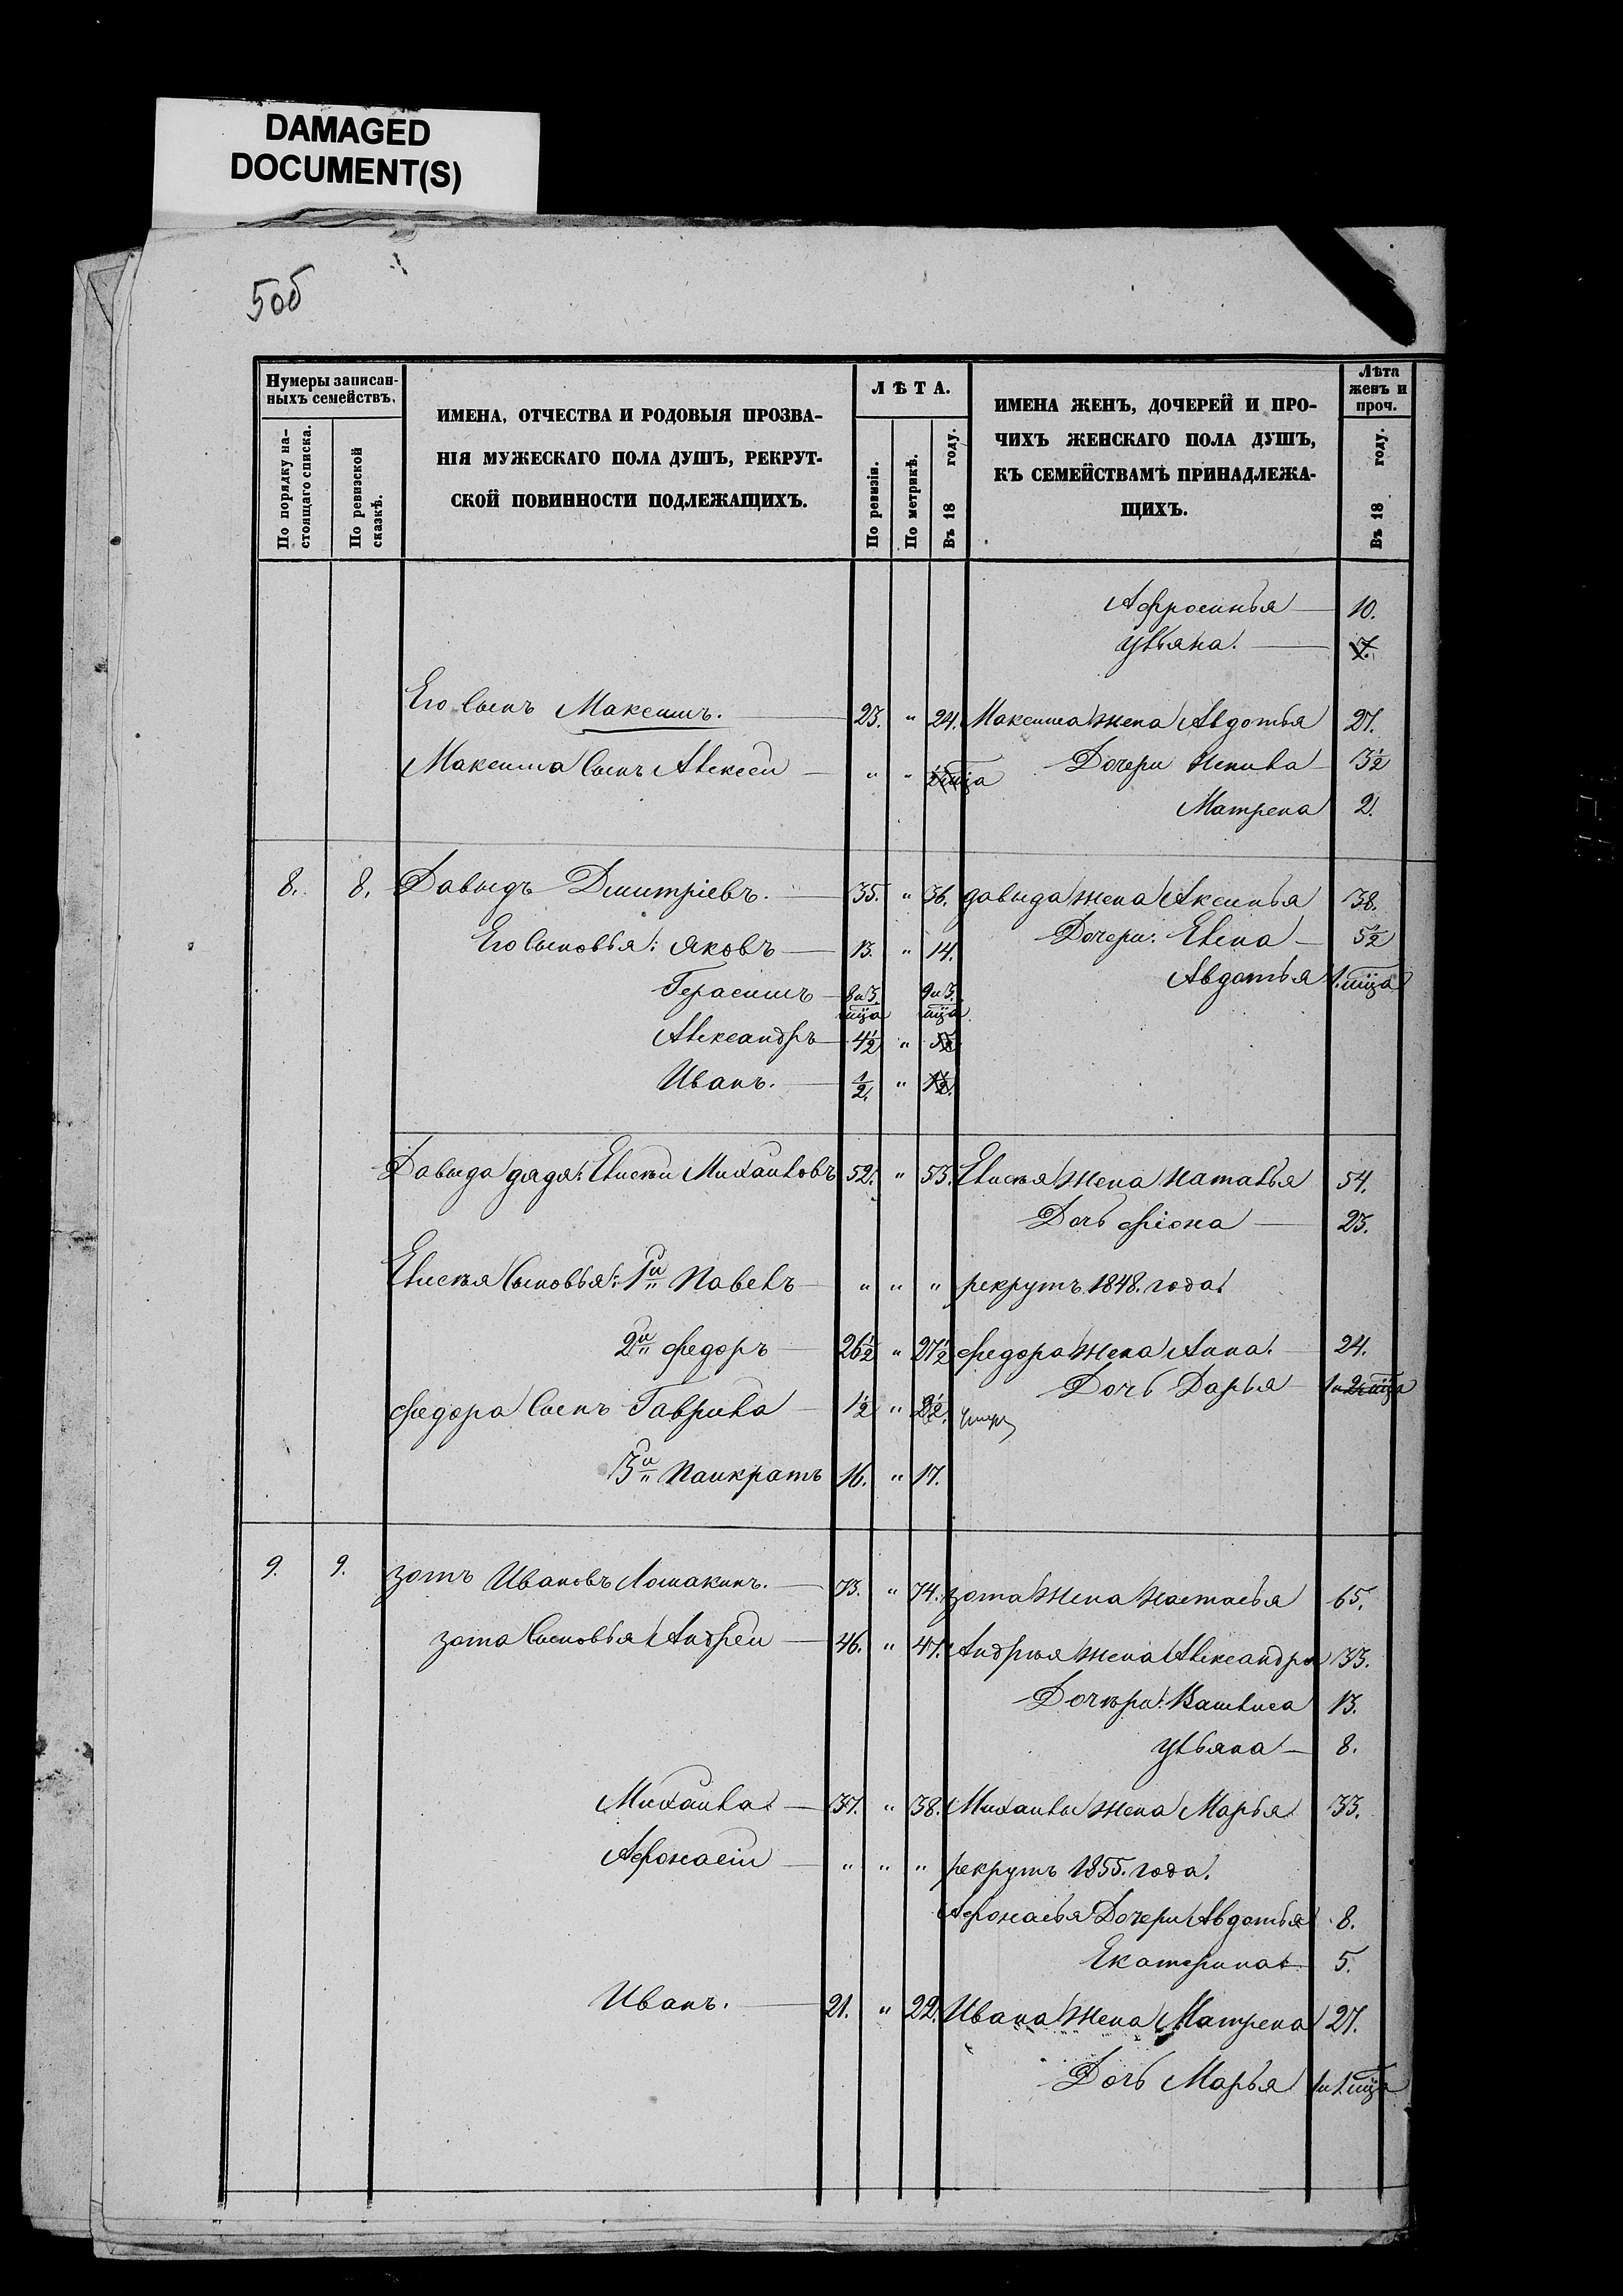 DAMAGED
DOCUMENT(S)
50б
Нумеры записан-
ныхъ семействъ.
По порядку на-
стоящаго списка.
По ревизской
сказкѣ.
ИМЕНА, ОТЧЕСТВА И РОДОВЫЯ ПРОЗВА-
НІЯ МУЖЕСКАГО ПОЛА ДУШЪ, РЕКРУТ-
СКОЙ ПОВИННОСТИ ПОДЛЕЖАЩИХЪ.
ЛѢТА.
По ревизіи.
По метрикѣ.
Въ 18 году.
ИМЕНА ЖЕНЪ, ДОЧЕРЕЙ И ПРО-
ЧИХЪ ЖЕНСКАГО ПОЛА ДУШЪ,
КЪ СЕМЕЙСТВАМЪ ПРИНАДЛЕЖА-
ЩИХЪ.
Лѣта
женъ и
проч.
Въ 18 году.
Афросинья 10.
Ульяна. 7.
Его Сынъ Максимъ. 23. " 24. Максима жена Авдотья 27.
Максима Сынъ Алексей " " Дочери 3½
Матрена 2.
8. 8. Давыдъ Дмитріевъ. 35. " 36. давыда жена Аксинья 38.
Его Сыновья: Яковъ 13. " 14. Дочери: Елена 5½
Герасимъ 8 и 3. мца 9 и 3. мца Авдотья 1. мца
Александръ 4½ " 5½
Иванъ. ½. " 1½.
Давыда дядя: Елисѣй Михайловъ 52. " 53. Елисѣя жена Наталья 54.
Дочь Фіона 23.
Елисѣя Сыновья: 1й Павелъ " " " рекрутъ 1848. года.
2й Федоръ 26½ " 27½ Федора жена Анна. 24.
Дочь Дарья 1 и 2 мца
Федора Сынъ Гаврила 1½ " 2½. умеръ
3й Панкратъ 16. " 17.
9. 9. Зотъ Ивановъ Ломакинъ. 73. " 74. Зота жена Настасья 65.
Зота Сыновья Андрей 46. " 47. Андрѣя жена Александра 33.
Дочѣри: Васлиса 13.
Ульяна 8.
Михаила. 37. " 38. Михаилы жена Марья 33.
Афонасій " " " рекрутъ 1855. года.
Афонасья Дочери Авдотья 8.
Екатерина 5.
Иванъ. 21. " 22. Ивана жена Матрена 27.
Дочь Марья 1 и 1. мца